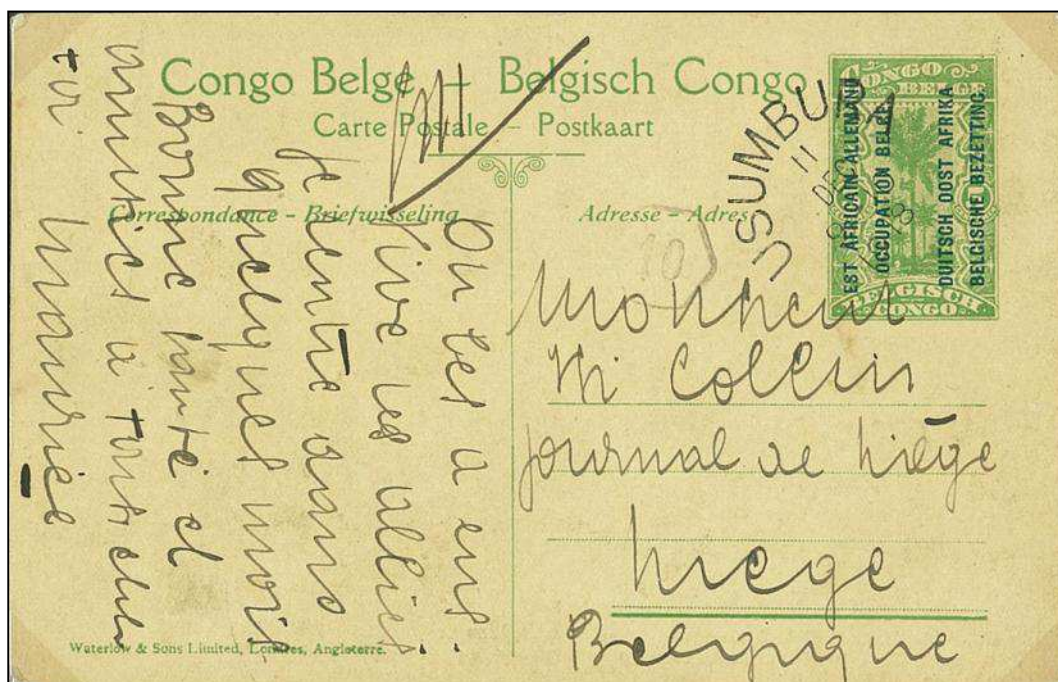 Congo Belge – Belgisch Congo
Carte Postale – Postkaart
Correspondance – Briefwisseling
Adresse – Adres
CONGO BELGE
EST AFRICAIN ALLEMAND
OCCUPATION BELGE
DUITSCH OOST AFRIKA
BELGISCHE BEZETTING.
BELGISCH CONGO
USUMBURA
11
DEC
On les a eus.
Vive les alliés.
Je rentre dans
quelques mois
Bonne santé et
amitiés à tout
toi
Maurice
Monsieur
M Collin
Journal de Liège
Liege
Belgique
Waterlow & Sons Limited, Londres, Angleterre.